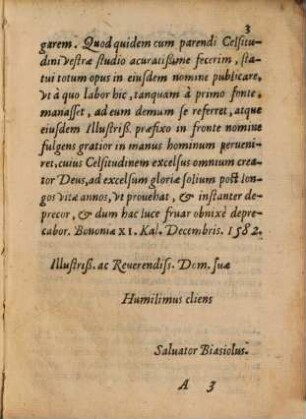 3
garem. Quod quidem cum parendi Celsitu-
dini vestræ studio acuratißime fecerim, sta-
tui totum opus in eiusdem nomine publicare,
vt à quo labor hic, tanquam à primo fonte,
manasset, ad eum demum se referret, atque
eiusdem Illustriß. præfixo in fronte nomine
fulgens gratior in manus hominum perueni-
ret, cuius Celsitudinem excelsus omnium crea-
tor Deus, ad excelsum gloriæ solium post lon-
gos vitæ annos, vt prouehat, & instanter de-
precor, & dum hac luce fruar obnixè depre-
cabor. Bononiæ XI. Kal. Decembris. 1582.
Illustriß. ac Reuerendiss. Dom. suæ
Humilimus cliens
Saluator Biasiolus.
A 3